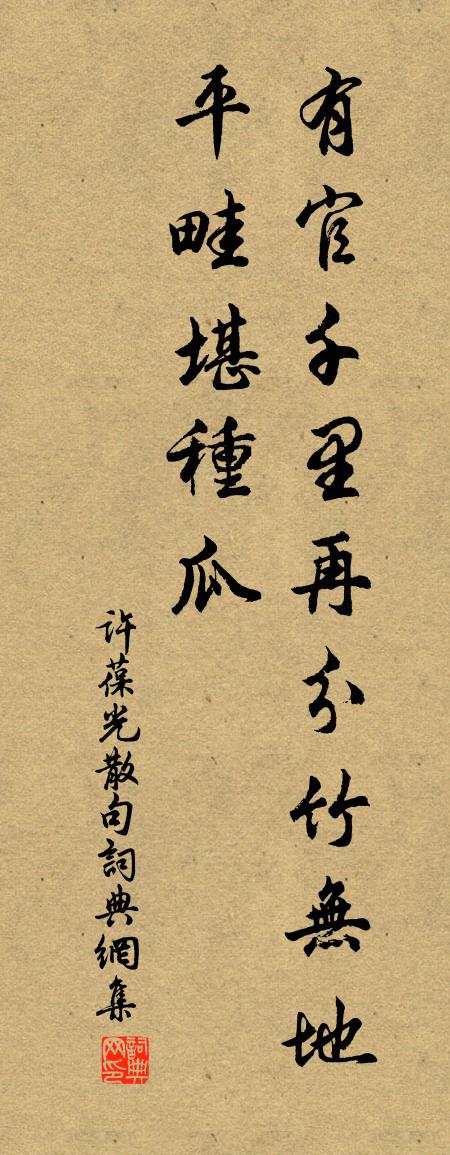 有官千里再分竹無地
平畦堪種瓜
许葆光散句詞典網集
詞典网印